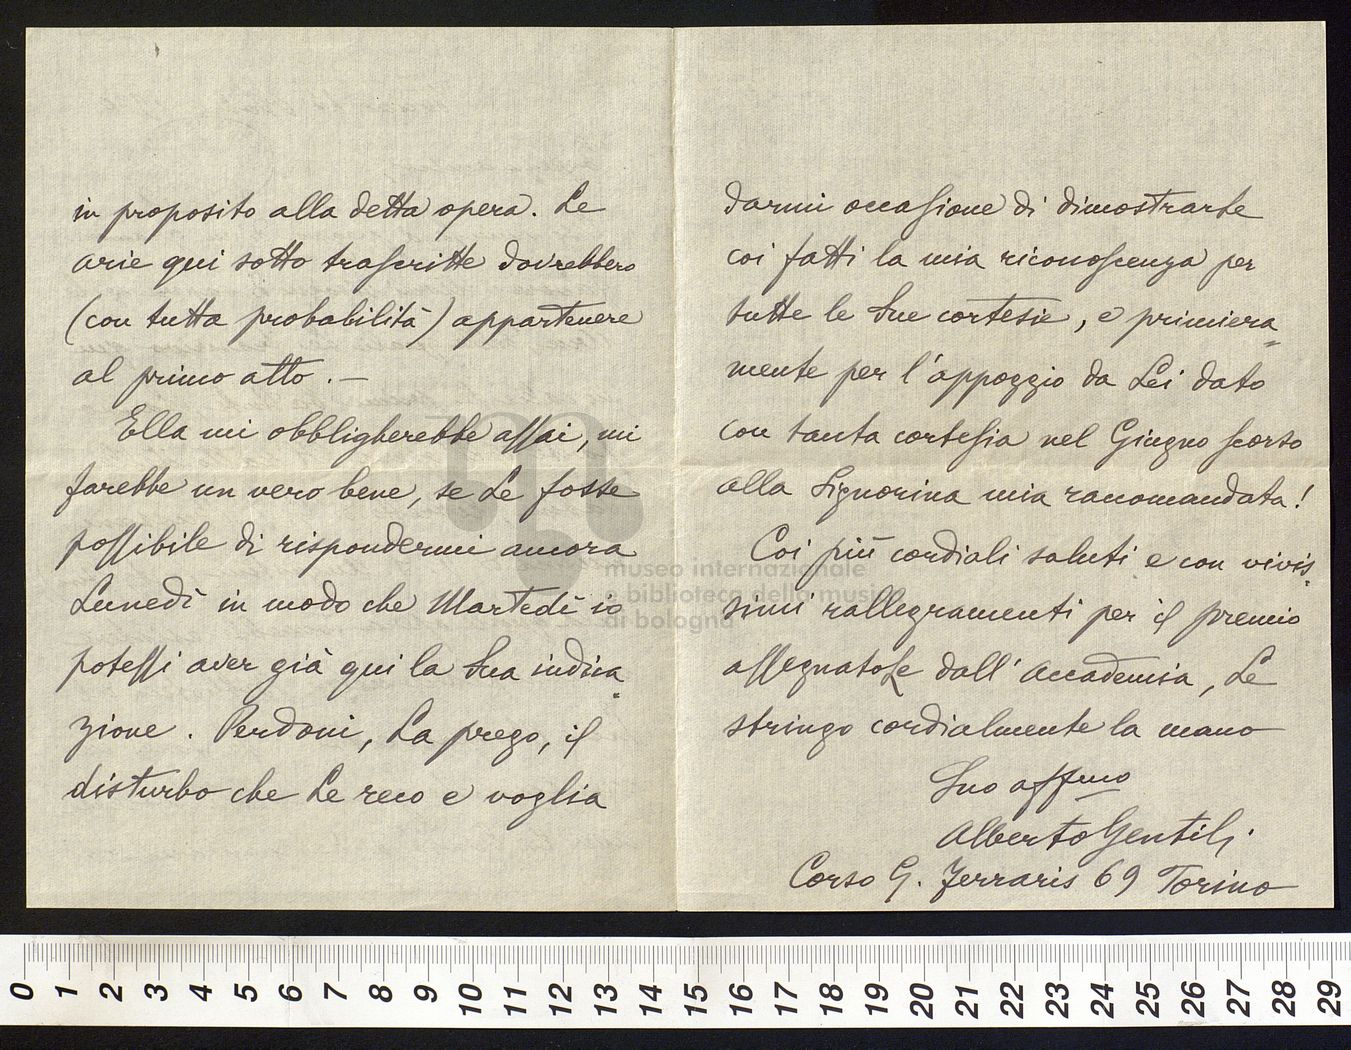 in proposito alla detta opera. Le
arie qui sotto trascritte dovrebbero
(con tutta probabilità) appartenere
al primo atto. —
Ella mi obbligherebbe assai, mi
farebbe un vero bene, se Le fosse
possibile di rispondermi ancora
Lunedì in modo che Martedì io
potessi aver già qui la Sua indica
zione. Perdoni, La prego, il
disturbo che Le reco e voglia
darmi occasione di dimostrarle
coi fatti la mia riconoscenza per
tutte le Sue cortesie, e primiera
mente per l'appoggio da Lei dato
con tanta cortesia nel Giugno scorso
alla Signorina mia raccomandata!
Coi più cordiali saluti e con vivis
simi rallegramenti per il premio
assegnatole dall'Accademia, Le
stringo cordialmente la mano
Suo affmo
Alberto Gentili
Corso G. Ferraris 69 Torino
museo internazionale
e biblioteca della musica
di bologna
0 1 2 3 4 5 6 7 8 9 10 11 12 13 14 15 16 17 18 19 20 21 22 23 24 25 26 27 28 29